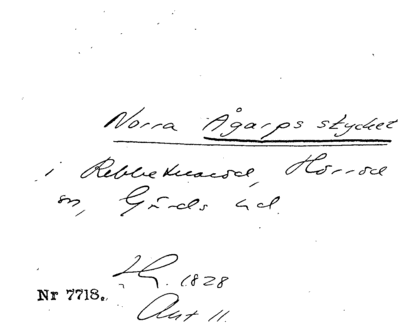 Norra Ågarps stycket
i Rebbetuaröd, Hörröd
sn, Gärds hd.
1828
Nr 7718.
Akt 11.